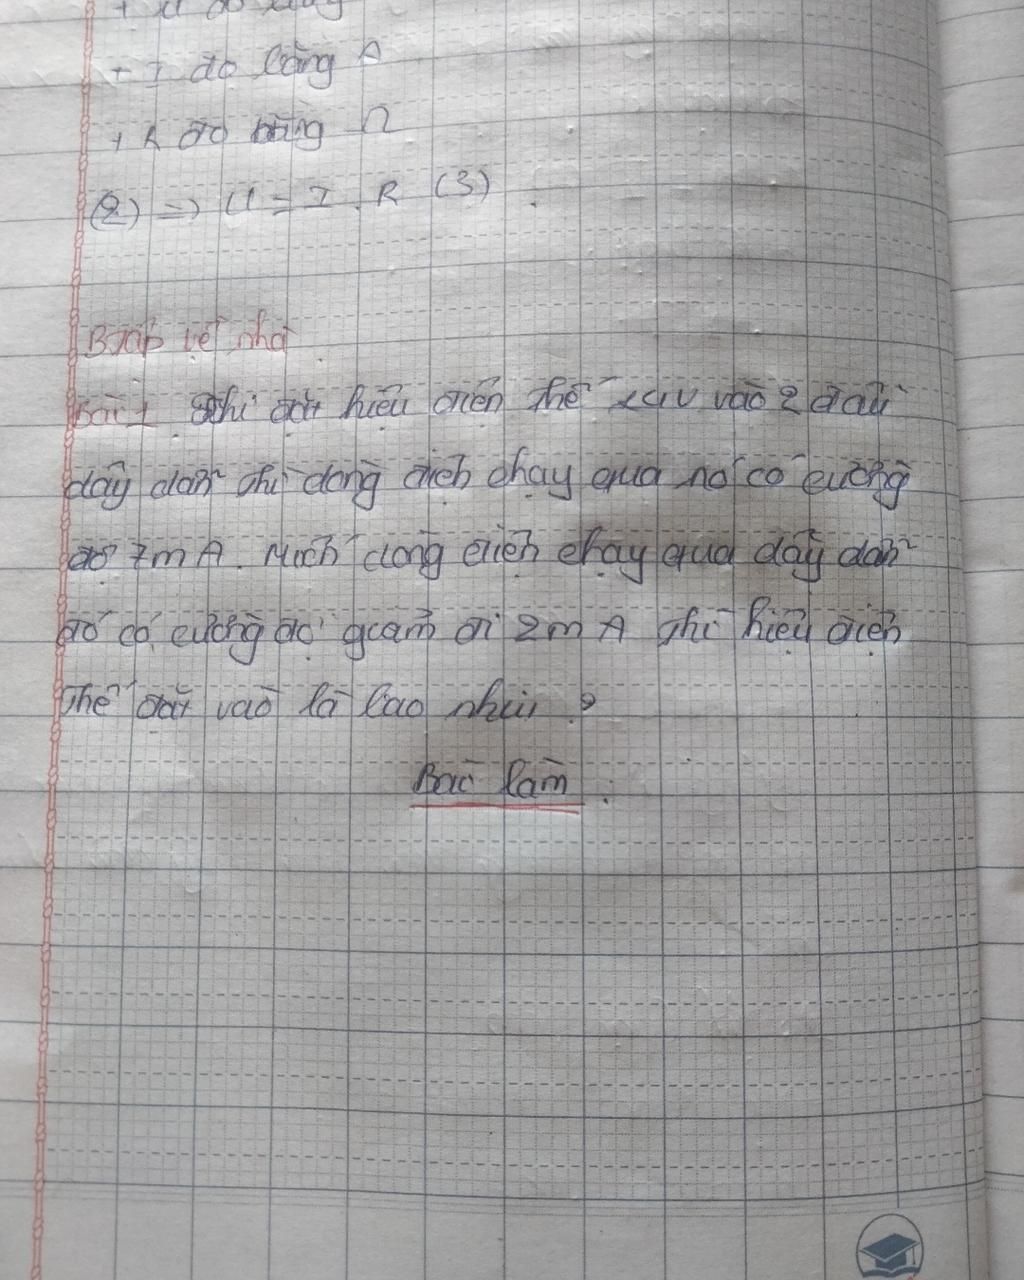 + U đo bằng
+ I đo bằng A
+ R đo bằng Ω
(2) => U = I . R (3)
B tập về nhà
Bài 1 Khi đặt hiệu điện thế vào 2 đầu
dây dẫn thì dòng điện chạy qua nó có cường
độ 7mA. Muốn dòng điện chạy qua dây dẫn
đó có cường độ giảm đi 2mA thì hiệu điện
thế đặt vào là bao nhiu ?
Bài làm :